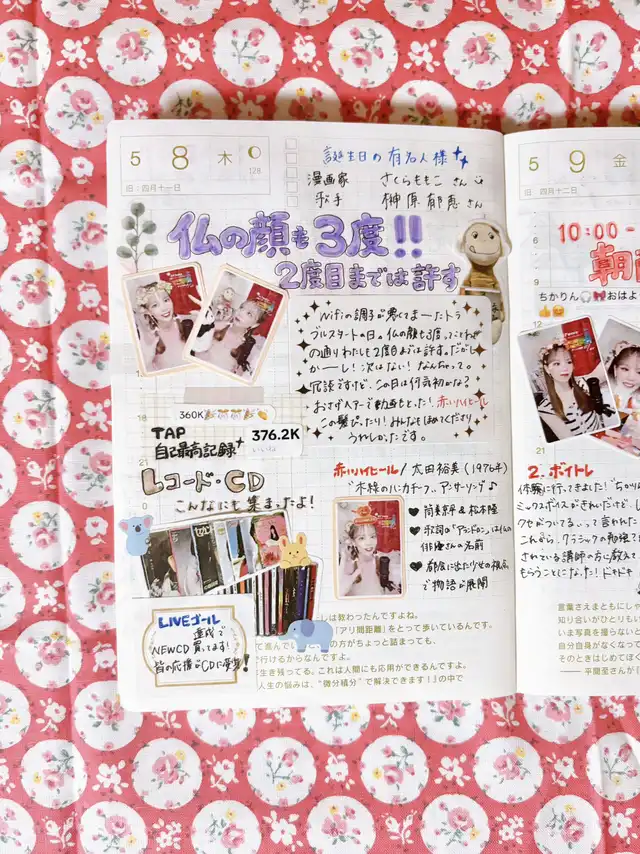 5 8 木
128
旧:四月十一日
誕生日の有名人様
漫画家 さくらももこ さん
歌手 榊原郁恵 さん
仏の顔も3度!!
2度目までは許す
Wifiの調子が悪くてまーたトラ
ブルスタートの日。仏の顔も3度、ってことわざ
の通りわたしも2度目までは許す。だがし
かーし!次はない!なんちゃって。
冗談ですけど、この日は何気初かな?
おさげヘアーで動画もとった!赤いハイヒール
この髪ぴったり!みんなもほめてくださり
うれしかったです。
18
360K
TAP
自己最高記録
376.2K
いいね
21
レコード・CD
こんなにも集まったよ!
赤いハイヒール/太田裕美(1976年)
"木綿のハンカチーフ"アンサーソング♪
♥ 筒美京平&松本隆
♥ 歌詞の「アランドロン」は仏の
俳優さんの名前
♥ 都会に出たり女の視点
で物語が展開
LIVEゴール
達成で
NEWCD買ってます!
皆の応援がCDに変身!
しは教わったんですよね。
「アリ間距離」をとって歩いているんです。
の方がちょっと詰まっても、
行けるからなんですよ。
生き残ってる。これは人間にも応用ができるんですよ。
人生の悩みは、"微分積分"で解決できます!」の中で
5 9 金
旧:四月十二日
6
10:00-
朝
ちかりん おはよ
9
12
2.ボイトレ
体験に行ってきました!"ちかりん
ミックスボイスがきれいだけど、し
クセがついてる"って言われた
これから、クラシックの勉強
されている講師の方に教えて
もらうことになった!ドキドキ
言葉さえまともにし
知り合いがひとりもい
いま写真を撮らない
自分自身がなくなって
そのときはじめてぼく
——平間至さんが